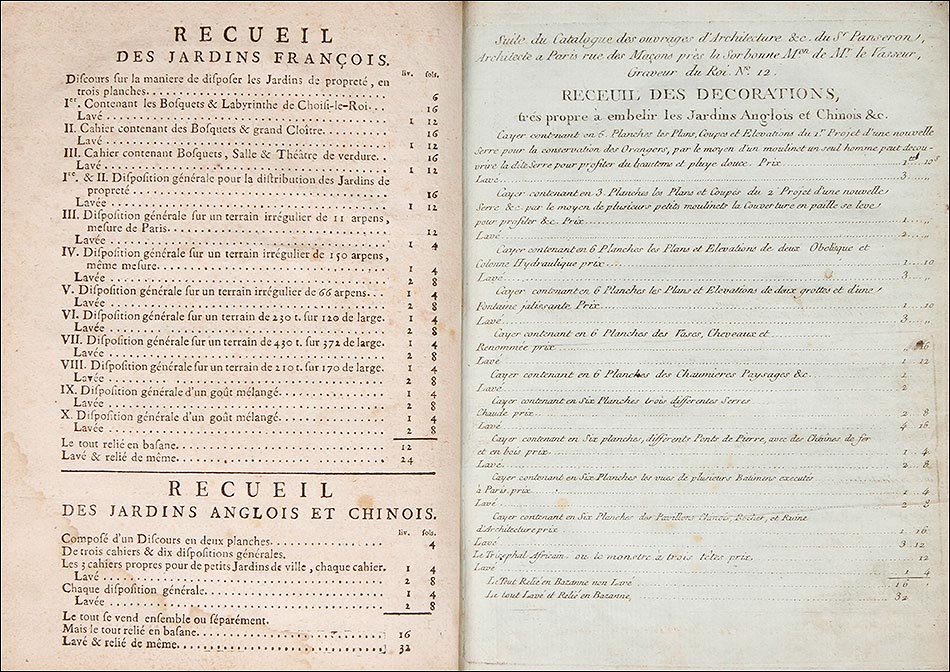 RECUEIL
DES JARDINS FRANÇOIS.
liv. sols.
Discours sur la maniere de disposer les Jardins de propreté, en
trois planches. 6
Ier. Contenant les Bosquets & Labyrinthe de Choisi-le-Roi. 16
Lavé 1 12
II. Cahier contenant des Bosquets & grand Cloître. 16
Lavé 1 12
III. Cahier contenant Bosquets, Salle & Théâtre de verdure. 16
Lavé 1 12
Ire. & II. Disposition générale pour la distribution des Jardins de
propreté 16
Lavée 1 12
III. Disposition générale sur un terrain irrégulier de 11 arpens,
mesure de Paris. 12
Lavée 1 4
IV. Disposition générale sur un terrain irrégulier de 150 arpens,
même mesure. 1 4
Lavée 2 8
V. Disposition générale sur un terrain irrégulier de 66 arpens. 1 4
Lavée 2 8
VI. Disposition générale sur un terrain de 230 t. sur 120 de large. 1 4
Lavée 2 8
VII. Disposition générale sur un terrain de 430 t. sur 372 de large. 1 4
Lavée 2 8
VIII. Disposition générale sur un terrain de 210 t. sur 170 de large. 1 4
Lavée 2 8
IX. Disposition générale d'un goût mélangé. 1 4
Lavée 2 8
X. Disposition générale d'un goût mélangé. 1 4
Lavée 2 8
Le tout relié en basane. 12
Lavé & relié de même. 24
RECUEIL
DES JARDINS ANGLOIS ET CHINOIS.
liv. sols.
Composé d'un Discours en deux planches. 4
De trois cahiers & dix dispositions générales.
Les 3 cahiers propres pour de petits Jardins de ville, chaque cahier. 1 4
Lavé 2 8
Chaque disposition générale. 1 4
Lavée 2 8
Le tout se vend ensemble ou séparément.
Mais le tout relié en basane. 16
Lavé & relié de même. 32
Suite du Catalogue des ouvrages d'Architecture &c. du Sr Panseron,
Architecte a Paris rue des Maçons près la Sorbonne Mon de Mr. le Vasseur,
Graveur du Roi. No. 12.
RECEUIL DES DECORATIONS,
trés propre à embelir les Jardins Anglois et Chinois &c.
Cayer contenant en 6. Planches les Plans, Coupes et Elevations du 1er Projet d'une nouvelle
Serre pour la conservation des Orangers, par le moyen d'un moulinet un seul homme peut decou-
vrire la dite Serre pour profiter du beautems et pluye douce. Prix 1 10
Lavé 3
Cayer contenant en 3. Planches les Plans et Coupes du 2 Projet d'une nouvelle
Serre &c. par le moyen de plusieurs petits moulinets la Couverture en paille se leve
pour profiter &c. Prix 1
Lavé 2
Cayer contenant en 6 Planches les Plans et Elevations de deux Obelisque et
Colonne Hydraulique prix 1 10
Lavé 3
Cayer contenant en 6 Planches les Plans et Elevations de deux grottes et d'une
Fontaine jalissante Prix 1 10
Lavé 3
Cayer contenant en 6 Planches des Vases, Cheveaux et
Renommée prix 16
Lavé 1 12
Cayer contenant en 6 Planches des Chaumieres Paysages &c. 1
Lavé 2
Cayer contenant en Six Planches trois differentes Serres
Chaude prix 2 8
Lavé 4 16
Cayer contenant en Six planches, différents Ponts de Pierre, avec des Chaines de fer
et en bois prix 1 4
Lavé 2 8
Cayer contenant en Six Planches les vues de plusieurs Batimens executés
à Paris prix 1 4
Lavé 2 8
Cayer contenant en Six Planches des Pavillons Chinois, Rocher, et Ruine
d'Architecture prix 1 16
Lavé 3 12
Le Tricephal Africain ou le monstre à trois têtes prix 12
Lavé 1 4
Le Tout Relié en Bazanne non Lavé 16
Le tout Lavé et Relié en Bazanne, 32